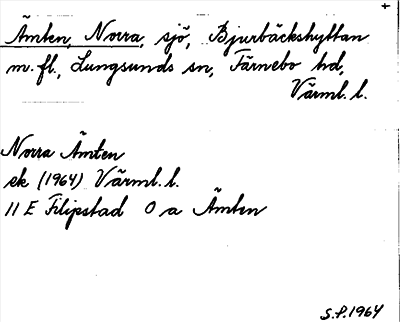 +
Ämten, Norra, sjö, Bjurbäckshyttan
m.fl., Lungsunds sn, Färnebo hd,
Värml. l.
Norra Ämten
ek (1964) Värml. l.
11 E Filipstad 0 a Ämten
S.P. 1964